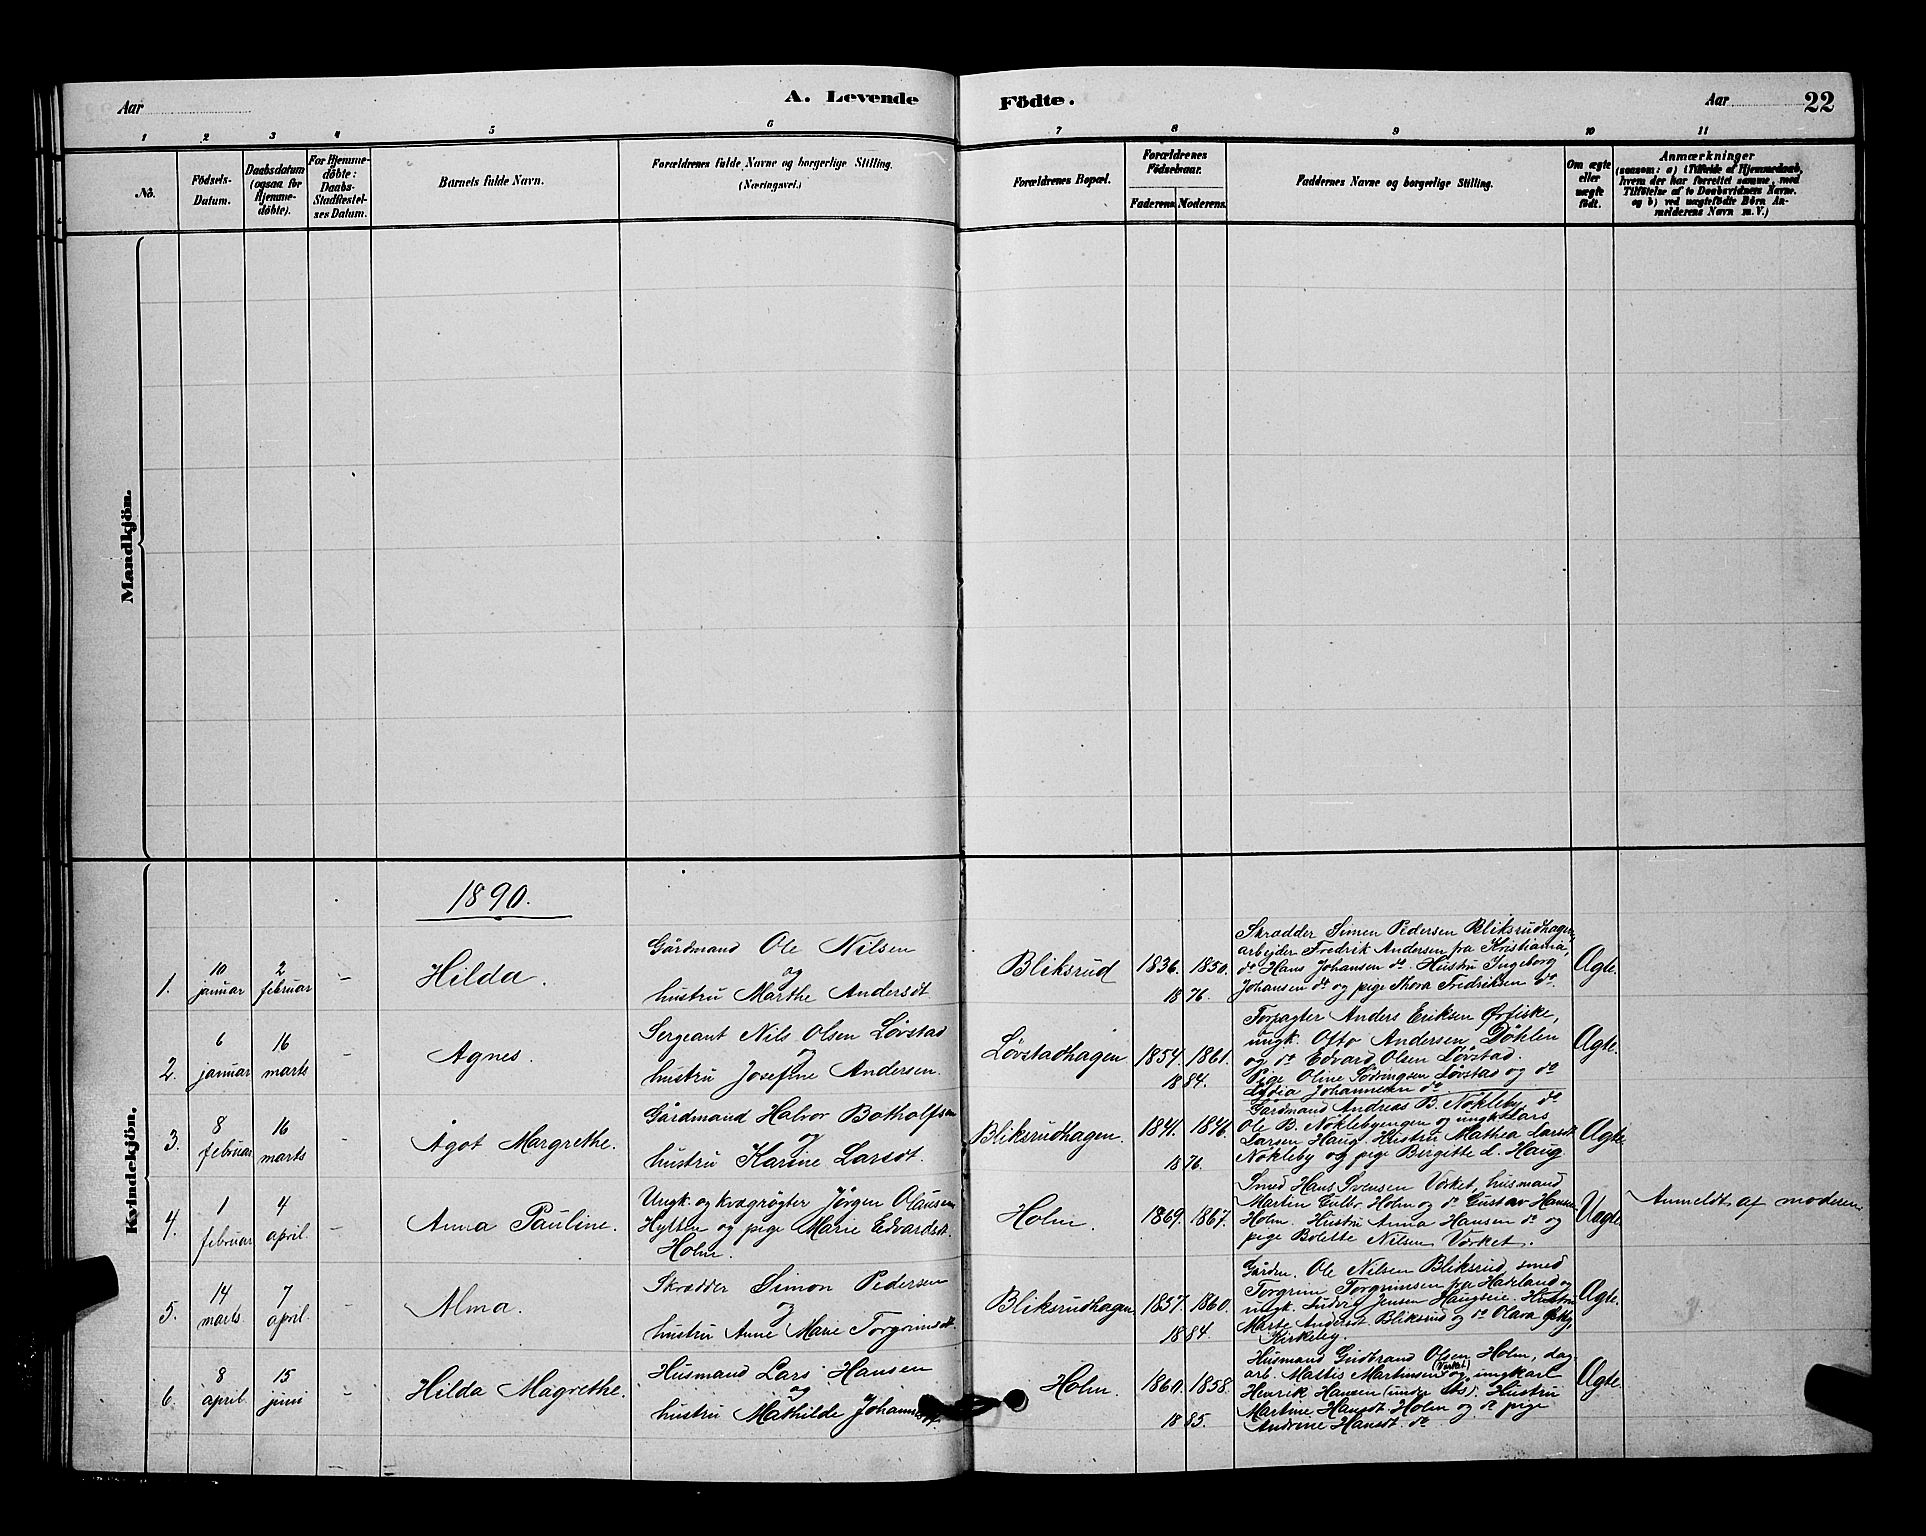 Aar
A. Levende
Födte.
Aar
22
1 2 3 4 5 6 7 8 9 10 11
No.
Födsels-
Datum.
Daabsdatum
(ogsaa for
Hjemme-
döbte).
For Hjemme-
döbte:
Daabs-
Stadfæstel-
ses Datum.
Barnets fulde Navn.
Forældrenes fulde Navne og borgerlige Stilling.
(Næringsvei.)
Forældrenes Bopæl.
Forældrenes
Födselsaar.
Faderens.
Moderens.
Faddernes Navne og borgerlige Stilling.
Om ægte
eller
uægte
födt.
Anmærkninger
(saasom: a) i Tilfælde af Hjemmedaab,
hvem der har forrettet samme, med
Tilföielse af to Daabsvidners Navne.
og b) ved uægtefödte Börn An-
melderens Navn m. V.)
Mandkjön.
Kvindekjön.
1890.
1.
10
januar
2
februar
–
Hilda.
Gårdmand Ole Nilsen
og
hustru Marthe Andersdt.
Bliksrud
1836. 1850.
1876.
Skrædder Simen Pedersen Bliksrudhagen,
arbejder Fredrik Andersen fra Kristiania,
do Hans Johansen do. Hustru Ingeborg
Johansen do og pige Thora Fredriksen do.
Ægte.
2.
6
januar
16
marts
–
Agnes.
Sergeant Nils Olsen Løvstad
og
hustru Josefine Andersen.
Løvstadhagen
1854. 1861.
1884.
Forpagter Anders Eriksen Ørfiske,
ungk. Otto Andersen Döhlen
og do Edvard Olsen Løvstad.
Pige Oline Södringsen Løvstad og do
Lydia Johannesen do
Ægte.
3.
8
februar
16
marts
–
Ågot Margrethe.
Gårdmand Halvor Botholfsen
og
hustru Karine Larsdt.
Bliksrudhagen.
1841. 1846.
1876.
Gårdmand Andreas B. Nökleby, do
Ole B. Nöklebyengen og ungk. Lars
Larsen Haug. Hustru Mathea Larsdt
Nökleby og pige Birgitte L. Haug
Ægte
4.
1
februar
4
april.
–
Anna Pauline.
Ungk. og kvægrøgter Jørgen Olausen
Hytten og pige Marie Edvardsdt.
Holm.
Holm.
1869. 1867.
Smed Hans Svensen Værket, husmand
Martin Gulbr. Holm og do Gustav Hansen
Holm. Hustru Anna Hansen do og
pige Bolette Nilsen Værket.
Uægte
Anmeldt af moderen.
5.
14
marts
7
april.
–
Alma.
Skrædder Simon Pedersen
og
hustru Anne Marie Torgrimsdt.
Bliksrudhagen
1857. 1860.
1884.
Gårdm. Ole Nilsen Bliksrud, smed
Torgrim Torgrimsen fra Hadeland og
ungk. Ludvig Jensen Haugseie. Hustru
Marte Andersdt Bliksrud og do Olava
Kirkeby.
Ægte.
6.
8
april
15
juni
–
Hilda Magrethe.
Husmand Lars Hansen
og
hustru Mathilde Johannesdt.
Holm.
1860. 1858.
1885.
Husmand Gudbrand Olsen Holm, dag-
arb. Mattis Martinsen (Værket) og ungkarl
Henrik Hansen (under do). Hustru
Martine Hansdt. Holm og do pige
Andrine Hansdt. do
Ægte